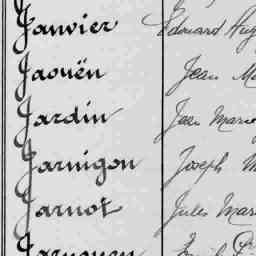 Janvier Édouard
Jaouën Jean
Jardin Jean Marie
Jarnigon Joseph
Jarnot Jules